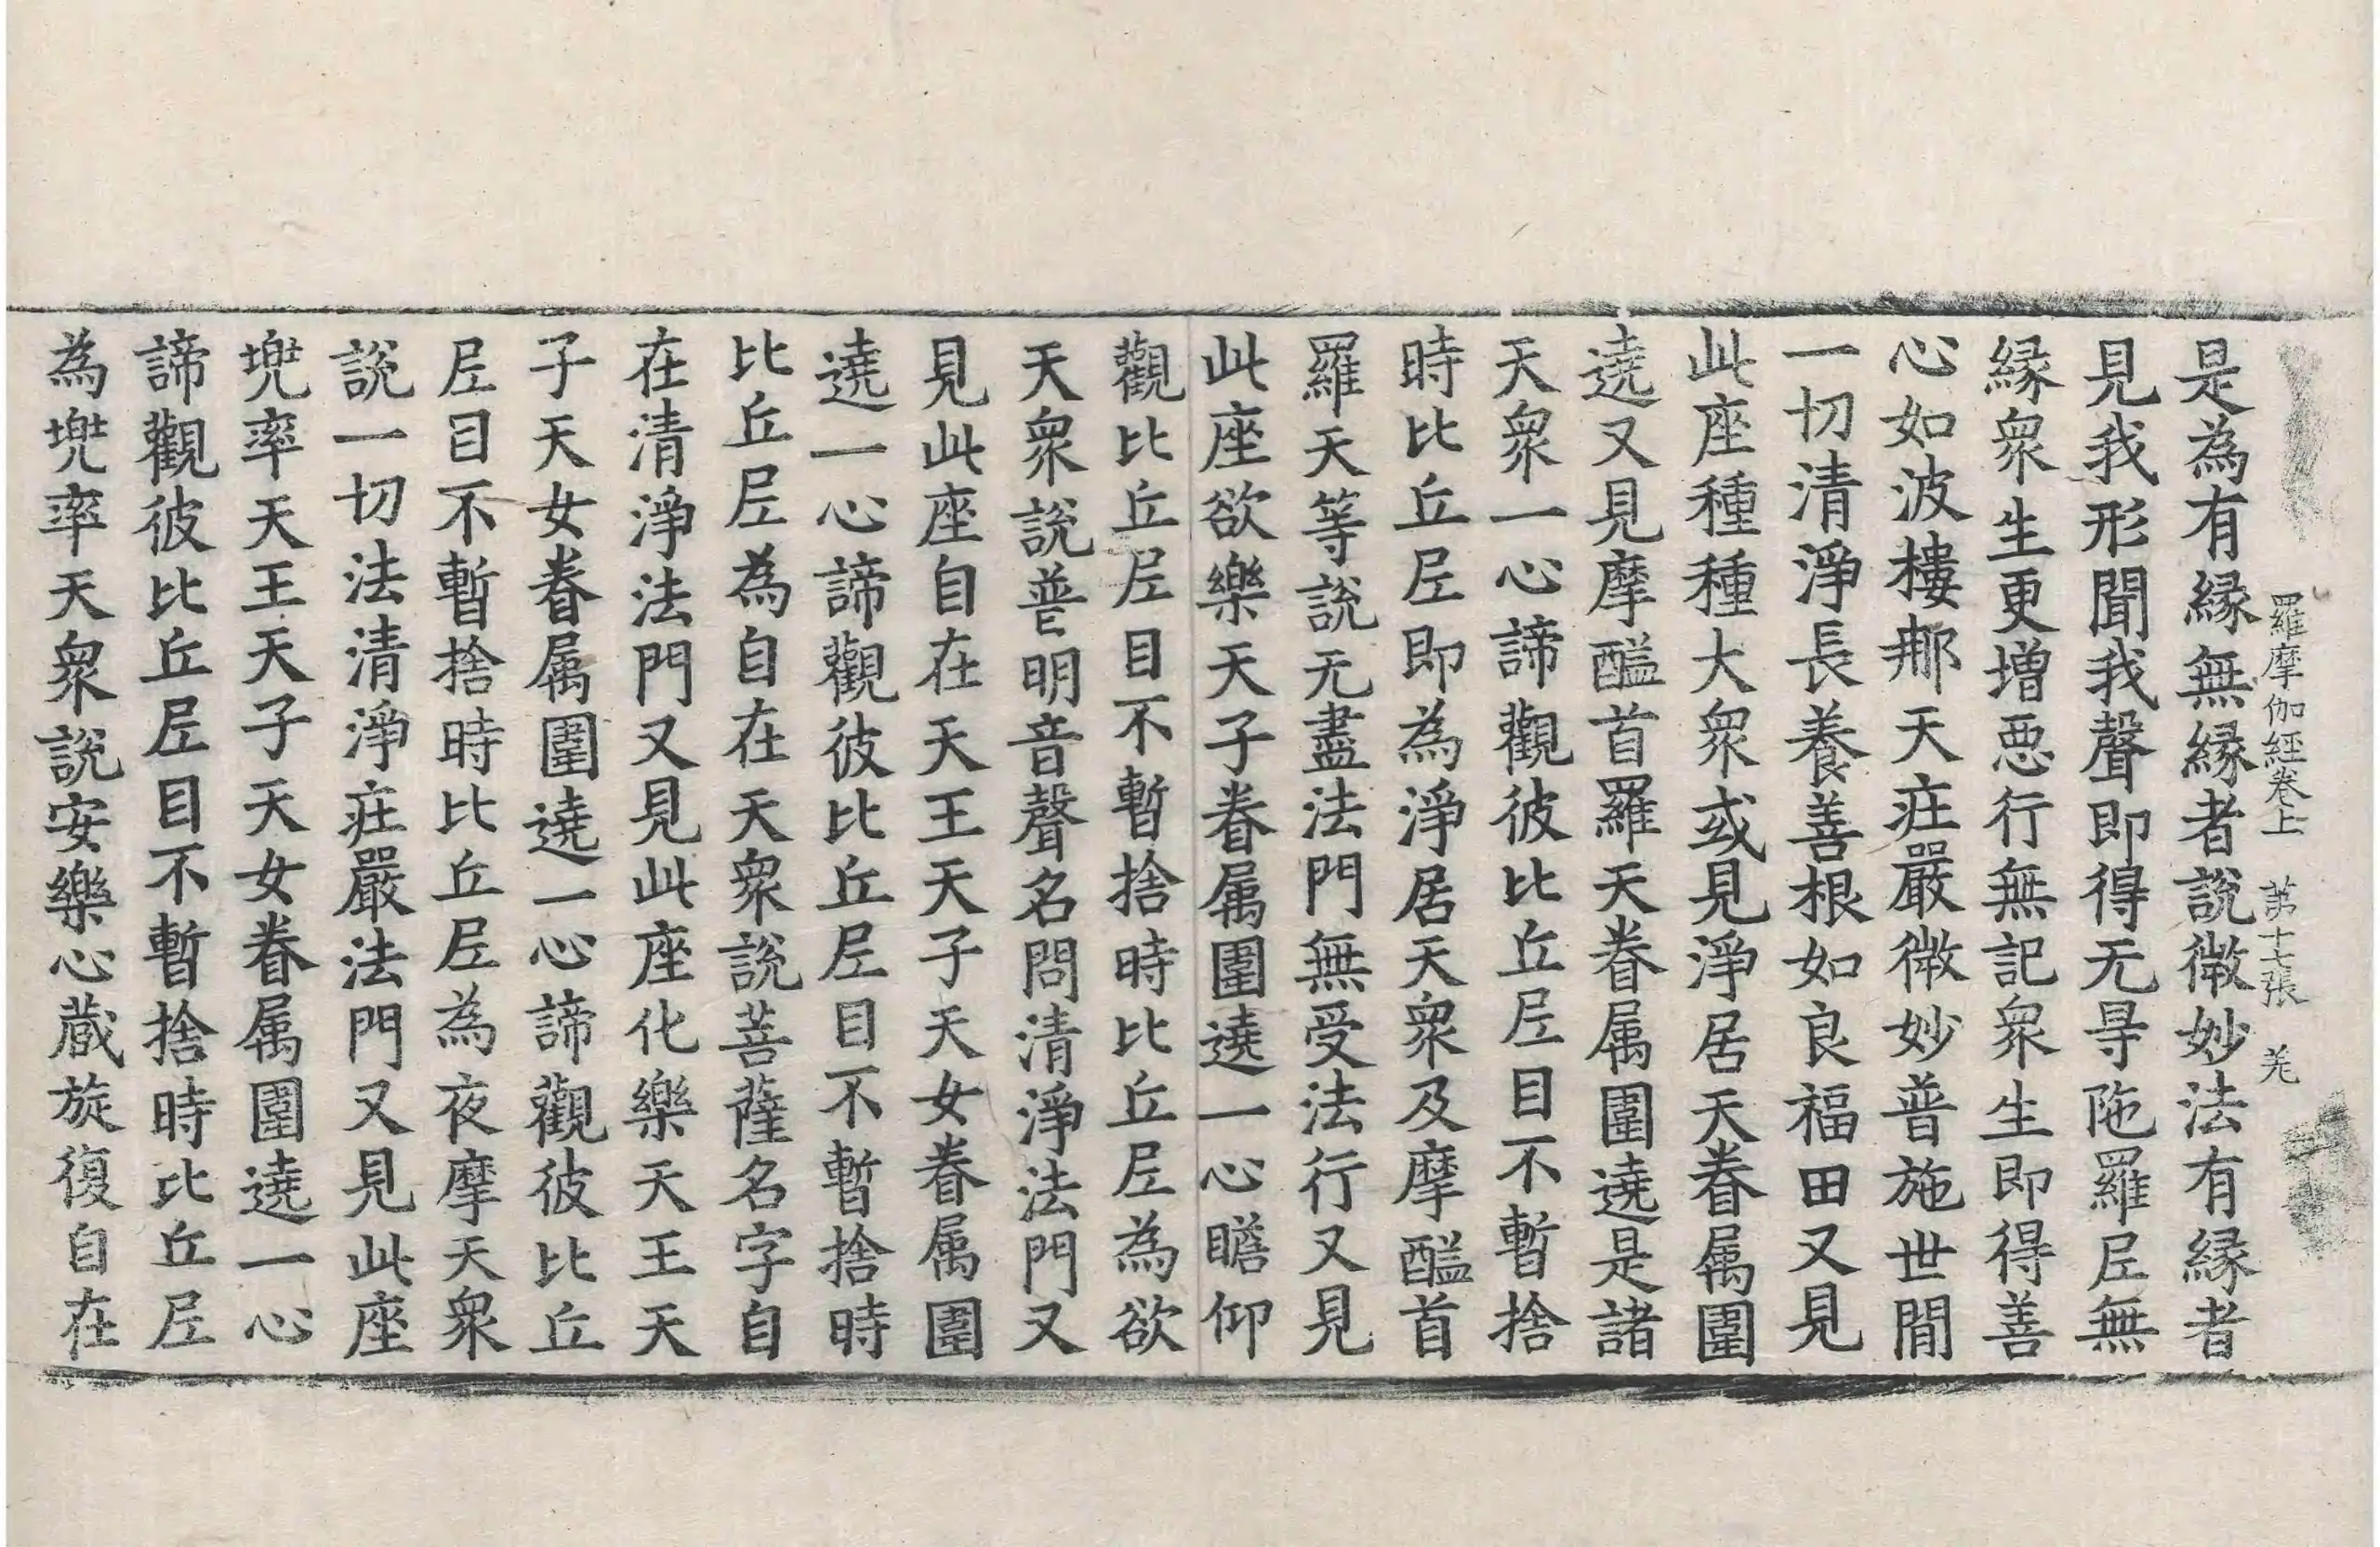 羅摩伽經卷上 第十七張 羌
是為有縁無縁者說微妙法有縁者
見我形聞我聲即得无㝵陁羅𡰱無
縁衆生更増惡行無記衆生即得善
心如波樓那天庄嚴微妙普施世間
一切清淨長養善根如良福田又見
此座種種大衆或見淨居天眷属圍
遶又見摩醯首羅天眷属圍遶是諸
天衆一心諦觀彼比丘𡰱目不暫捨
時比丘𡰱即為淨居天衆及摩醯首
羅天等説无盡法門無受法行又見
此座欲樂天子眷属圍遶一心瞻仰
觀比丘𡰱目不暫捨時比丘𡰱為欲
天衆説普明音聲名問清淨法門又
見此座自在天王天子天女眷属圍
遶一心諦觀彼比丘𡰱目不暫捨時
比丘𡰱為自在天衆説菩薩名字自
在清淨法門又見此座化樂天王天
子天女眷属圍遶一心諦觀彼比丘
𡰱目不暫捨時比丘𡰱為夜摩天衆
說一切法清淨庄嚴法門又見此座
兠率天王天子天女眷属圍遶一心
諦觀彼比丘𡰱目不暫捨時比丘𡰱
為兠率天衆説安樂心蔵旋復自在